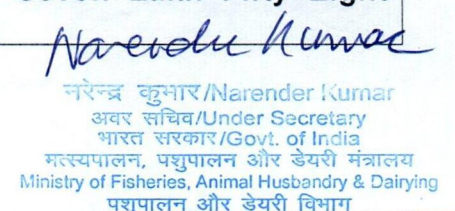 Narender Kumar
नरेन्द्र कुमार/Narender Kumar
अवर सचिव/Under Secretary
भारत सरकार/Govt. of India
मत्स्यपालन, पशुपालन और डेयरी मंत्रालय
Ministry of Fisheries, Animal Husbandry & Dairying
पशुपालन और डेयरी विभाग